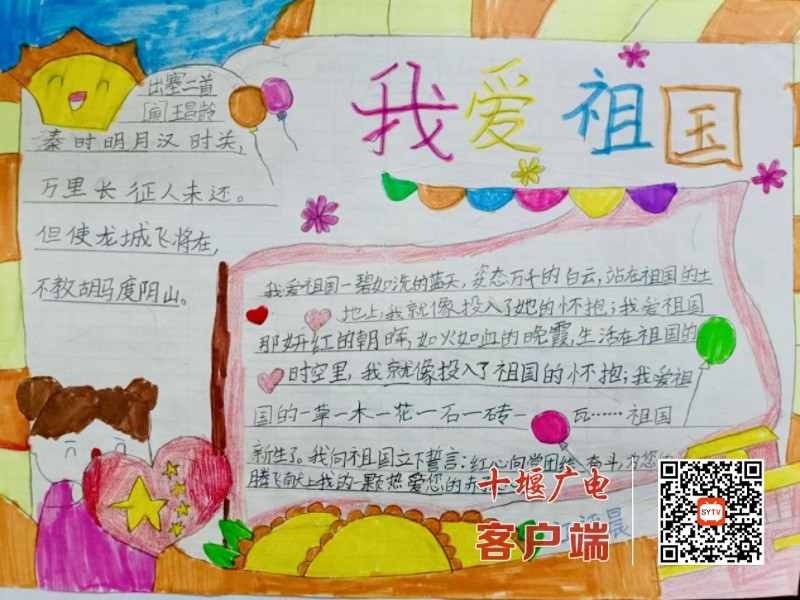 我爱祖国
出塞二首
[唐]王昌龄
秦时明月汉时关,
万里长征人未还。
但使龙城飞将在,
不教胡马度阴山。
我爱祖国一碧如洗的蓝天,姿态万千的白云,站在祖国的土
地上,我就像投入了她的怀抱;我爱祖国
那妍红的朝晖,如火如血的晚霞,生活在祖国的
时空里,我就像投入了祖国的怀抱;我爱祖
国的一草一木一花一石一砖一瓦……祖国
新生了。我向祖国立下誓言:红心向学团结奋斗,为您的
腾飞献上我的一颗热爱您的赤
晨
十堰广电
客户端
SYTV